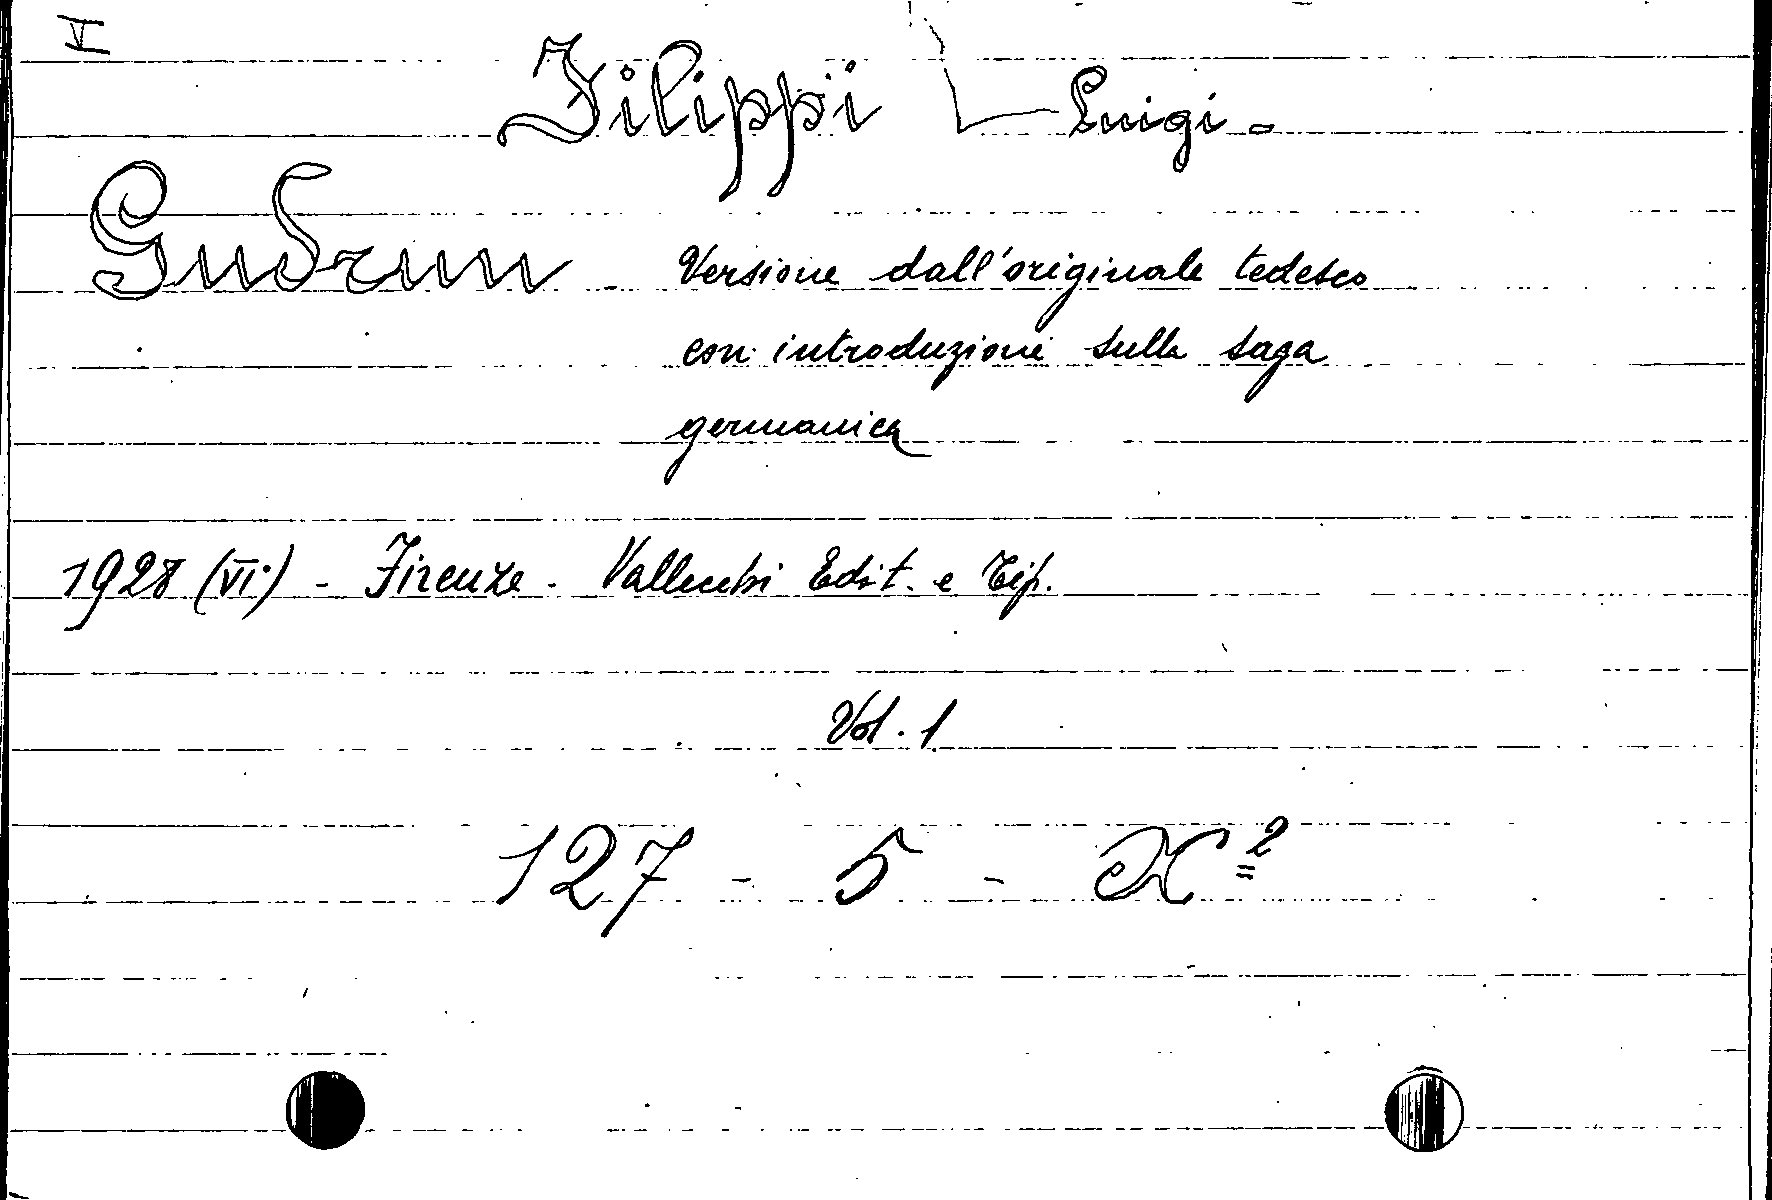 V
Filippi Luigi -
Gudrun - Versione dall'originale tedesco
con introduzione sulla saga
germanica
1928 (VI.) - Firenze - Vallecchi Edit. e Tip.
Vol. 1
127 - 5 - X²